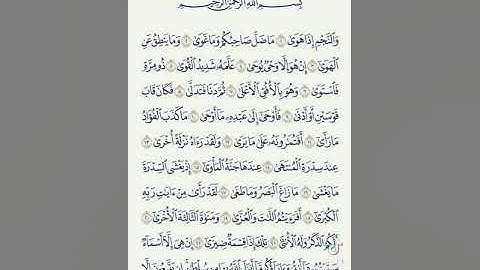 بِسْمِ اللَّهِ الرَّحْمَٰنِ الرَّحِيمِ
وَالنَّجْمِ إِذَا هَوَىٰ ١ مَا ضَلَّ صَاحِبُكُمْ وَمَا غَوَىٰ ٢ وَمَا يَنطِقُ عَنِ
الْهَوَىٰ ٣ إِنْ هُوَ إِلَّا وَحْيٌ يُوحَىٰ ٤ عَلَّمَهُ شَدِيدُ الْقُوَىٰ ٥ ذُو مِرَّةٍ
فَاسْتَوَىٰ ٦ وَهُوَ بِالْأُفُقِ الْأَعْلَىٰ ٧ ثُمَّ دَنَا فَتَدَلَّىٰ ٨ فَكَانَ قَابَ
قَوْسَيْنِ أَوْ أَدْنَىٰ ٩ فَأَوْحَىٰ إِلَىٰ عَبْدِهِ مَا أَوْحَىٰ ١٠ مَا كَذَبَ الْفُؤَادُ
مَا رَأَىٰ ١١ أَفَتُمَارُونَهُ عَلَىٰ مَا يَرَىٰ ١٢ وَلَقَدْ رَآهُ نَزْلَةً أُخْرَىٰ ١٣
عِندَ سِدْرَةِ الْمُنتَهَىٰ ١٤ عِندَهَا جَنَّةُ الْمَأْوَىٰ ١٥ إِذْ يَغْشَى السِّدْرَةَ
مَا يَغْشَىٰ ١٦ مَا زَاغَ الْبَصَرُ وَمَا طَغَىٰ ١٧ لَقَدْ رَأَىٰ مِنْ آيَاتِ رَبِّهِ
الْكُبْرَىٰ ١٨ أَفَرَأَيْتُمُ اللَّاتَ وَالْعُزَّىٰ ١٩ وَمَنَاةَ الثَّالِثَةَ الْأُخْرَىٰ ٢٠
أَلَكُمُ الذَّكَرُ وَلَهُ الْأُنثَىٰ ٢١ تِلْكَ إِذًا قِسْمَةٌ ضِيزَىٰ ٢٢ إِنْ هِيَ إِلَّا أَسْمَاءٌ